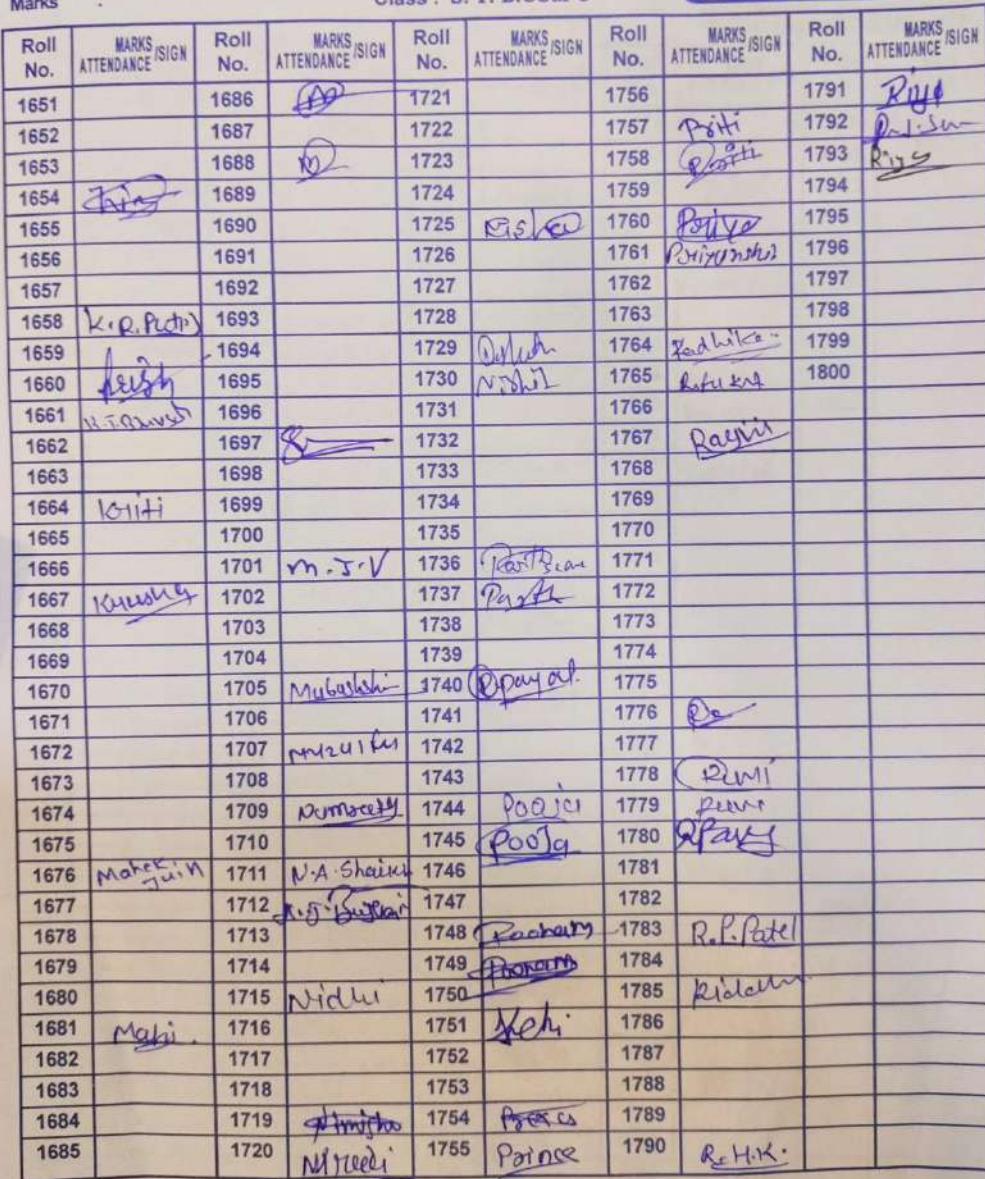 Marks :
Roll No. MARKS ATTENDANCE /SIGN Roll No. MARKS ATTENDANCE /SIGN Roll No. MARKS ATTENDANCE /SIGN Roll No. MARKS ATTENDANCE /SIGN Roll No. MARKS ATTENDANCE /SIGN
1651 1686 1721 1756 1791 Riya
1652 1687 1722 1757 Priti 1792
1653 1688 1723 1758 1793 Riya
1654 1689 1724 1759 1794
1655 1690 1725 1760 Priya 1795
1656 1691 1726 1761 Priyanshi 1796
1657 1692 1727 1762 1797
1658 K.R. 1693 1728 1763 1798
1659 1694 1729 1764 Radhika 1799
1660 1695 1730 1765 1800
1661 1696 1731 1766
1662 1697 1732 1767
1663 1698 1733 1768
1664 Kriti 1699 1734 1769
1665 1700 1735 1770
1666 1701 M.J.V 1736 1771
1667 1702 1737 Parth 1772
1668 1703 1738 1773
1669 1704 1739 1774
1670 1705 1740 Payal. 1775
1671 1706 1741 1776
1672 1707 1742 1777
1673 1708 1743 1778 Rimi
1674 1709 1744 Pooja 1779
1675 1710 1745 Pooja 1780
1676 Mahek Jain 1711 N.A. Shaikh 1746 1781
1677 1712 1747 1782
1678 1713 1748 1783 R.P. Patel
1679 1714 1749 Poonam 1784
1680 1715 Nidhi 1750 1785 Riddhi
1681 Mahi. 1716 1751 1786
1682 1717 1752 1787
1683 1718 1753 1788
1684 1719 Nimisha 1754 1789
1685 1720 1755 Prince 1790 R.H.K.